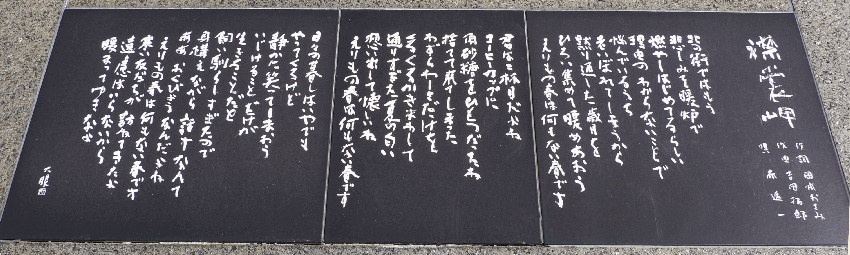 襟裳岬
作詞 岡本おさみ
作曲 吉田拓郎
唄 森進一
北の街ではもう
悲しみを暖炉で
燃やしはじめてるらしい
理由のわからないことで
悩んでいるうち
老いぼれてしまうから
黙り通した歳月を
ひろい集めて暖めあおう
えりもの春は何もない春です
君は二杯目だよね
コーヒーカップに
角砂糖をひとつだったね
捨てて来てしまった
わずらわしさだけを
くるくるかきまわして
通りすぎた夏の匂い
想い出して懐しいね
えりもの春は何もない春です
日々の暮しはいやでも
やってくるけど
静かに笑ってしまおう
いじけることだけが
生きることだと
飼い馴らしすぎたので
身構えながら話すなんて
ああおくびょうなんだよね
えりもの春は何もない春です
寒い友だちが訪ねてきたよ
遠慮はいらないから
暖まってゆきなよ